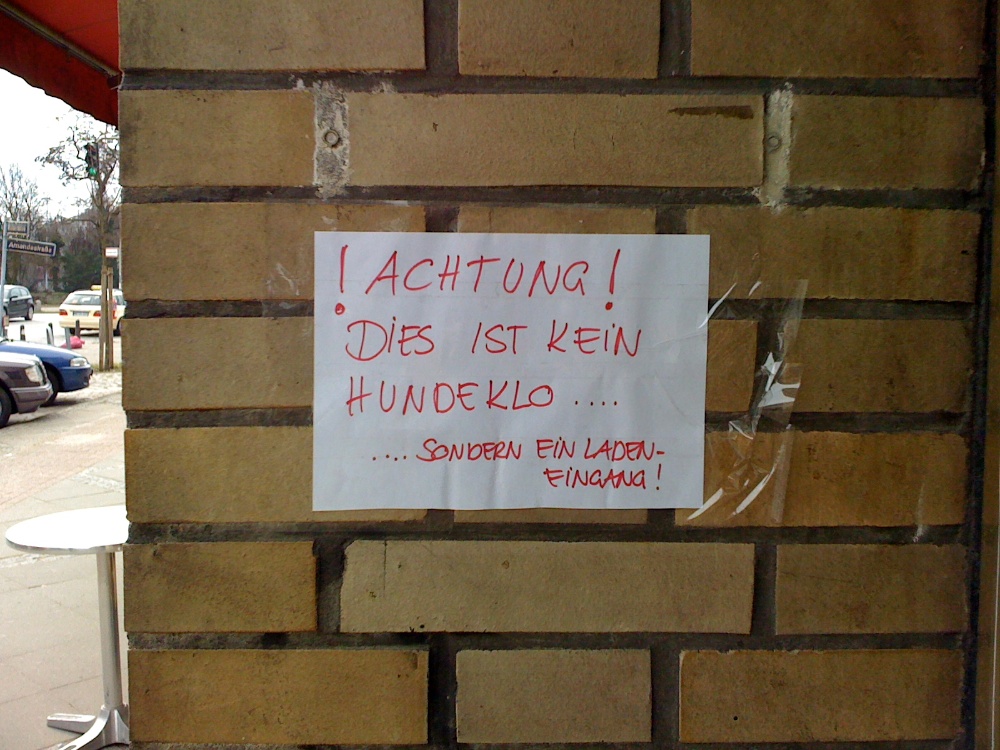 Amandastraße
! ACHTUNG !
DIES IST KEIN
HUNDEKLO ....
.... SONDERN EIN LADEN-
EINGANG !